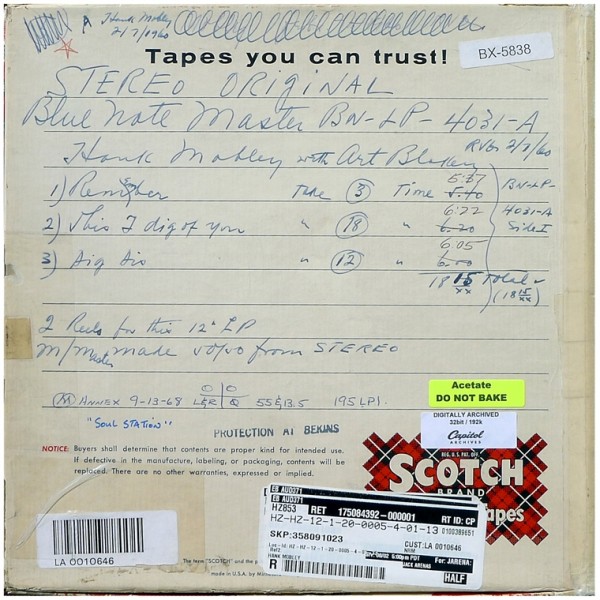 A Hank Mobley
2/7/1960
BX-5838
Tapes you can trust!
STEREO ORIGINAL
Blue Note Master BN-LP-4031-A
Hank Mobley with Art Blakey RVG 2/7/60
1) Remember Take 3 Time 5:37 5:40
2) This I dig of you " 18 " 6:22 6:20
3) Dig Dis " 12 " 6:05 6:00
BN-LP-
4031-A
Side I
18 15/xx Total
(18 15/xx)
2 Reels for this 12" LP
M/Master made 50/50 from STEREO
M ANNEX 9-13-68 L&R 0|0 Q 55E13.5 195LP1.
"SOUL STATION"
PROTECTION AT BEKINS
Acetate
DO NOT BAKE
DIGITALLY ARCHIVED
32bit / 192k
Capitol
ARCHIVES
NOTICE: Buyers shall determine that contents are proper kind for intended use.
If defective in the manufacture, labeling, or packaging, contents will be
replaced. There are no other warranties, expressed or implied.
REG. U.S. PAT. OFF.
SCOTCH
BRAND
Tapes
EB AUD371
EB AUD371
HZ853 RET 175084392-000001 RT ID: CP
HZ-HZ-12-1-20-0005-4-01-13 0100389651
SKP:358091023 CUST:LA 0010646
HANK MOBLEY
R
JACK ARENAS
For: JARENA:
HALF
LA 0010646
The term "SCOTCH" and the plaid
made in U.S.A. by